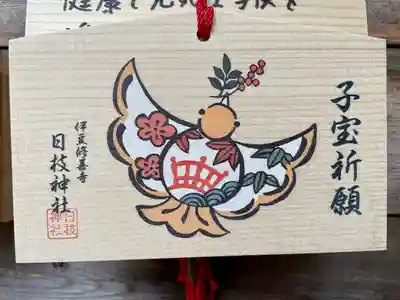 健康で元気
子宝祈願
伊豆修善寺
日枝神社
日枝
神社